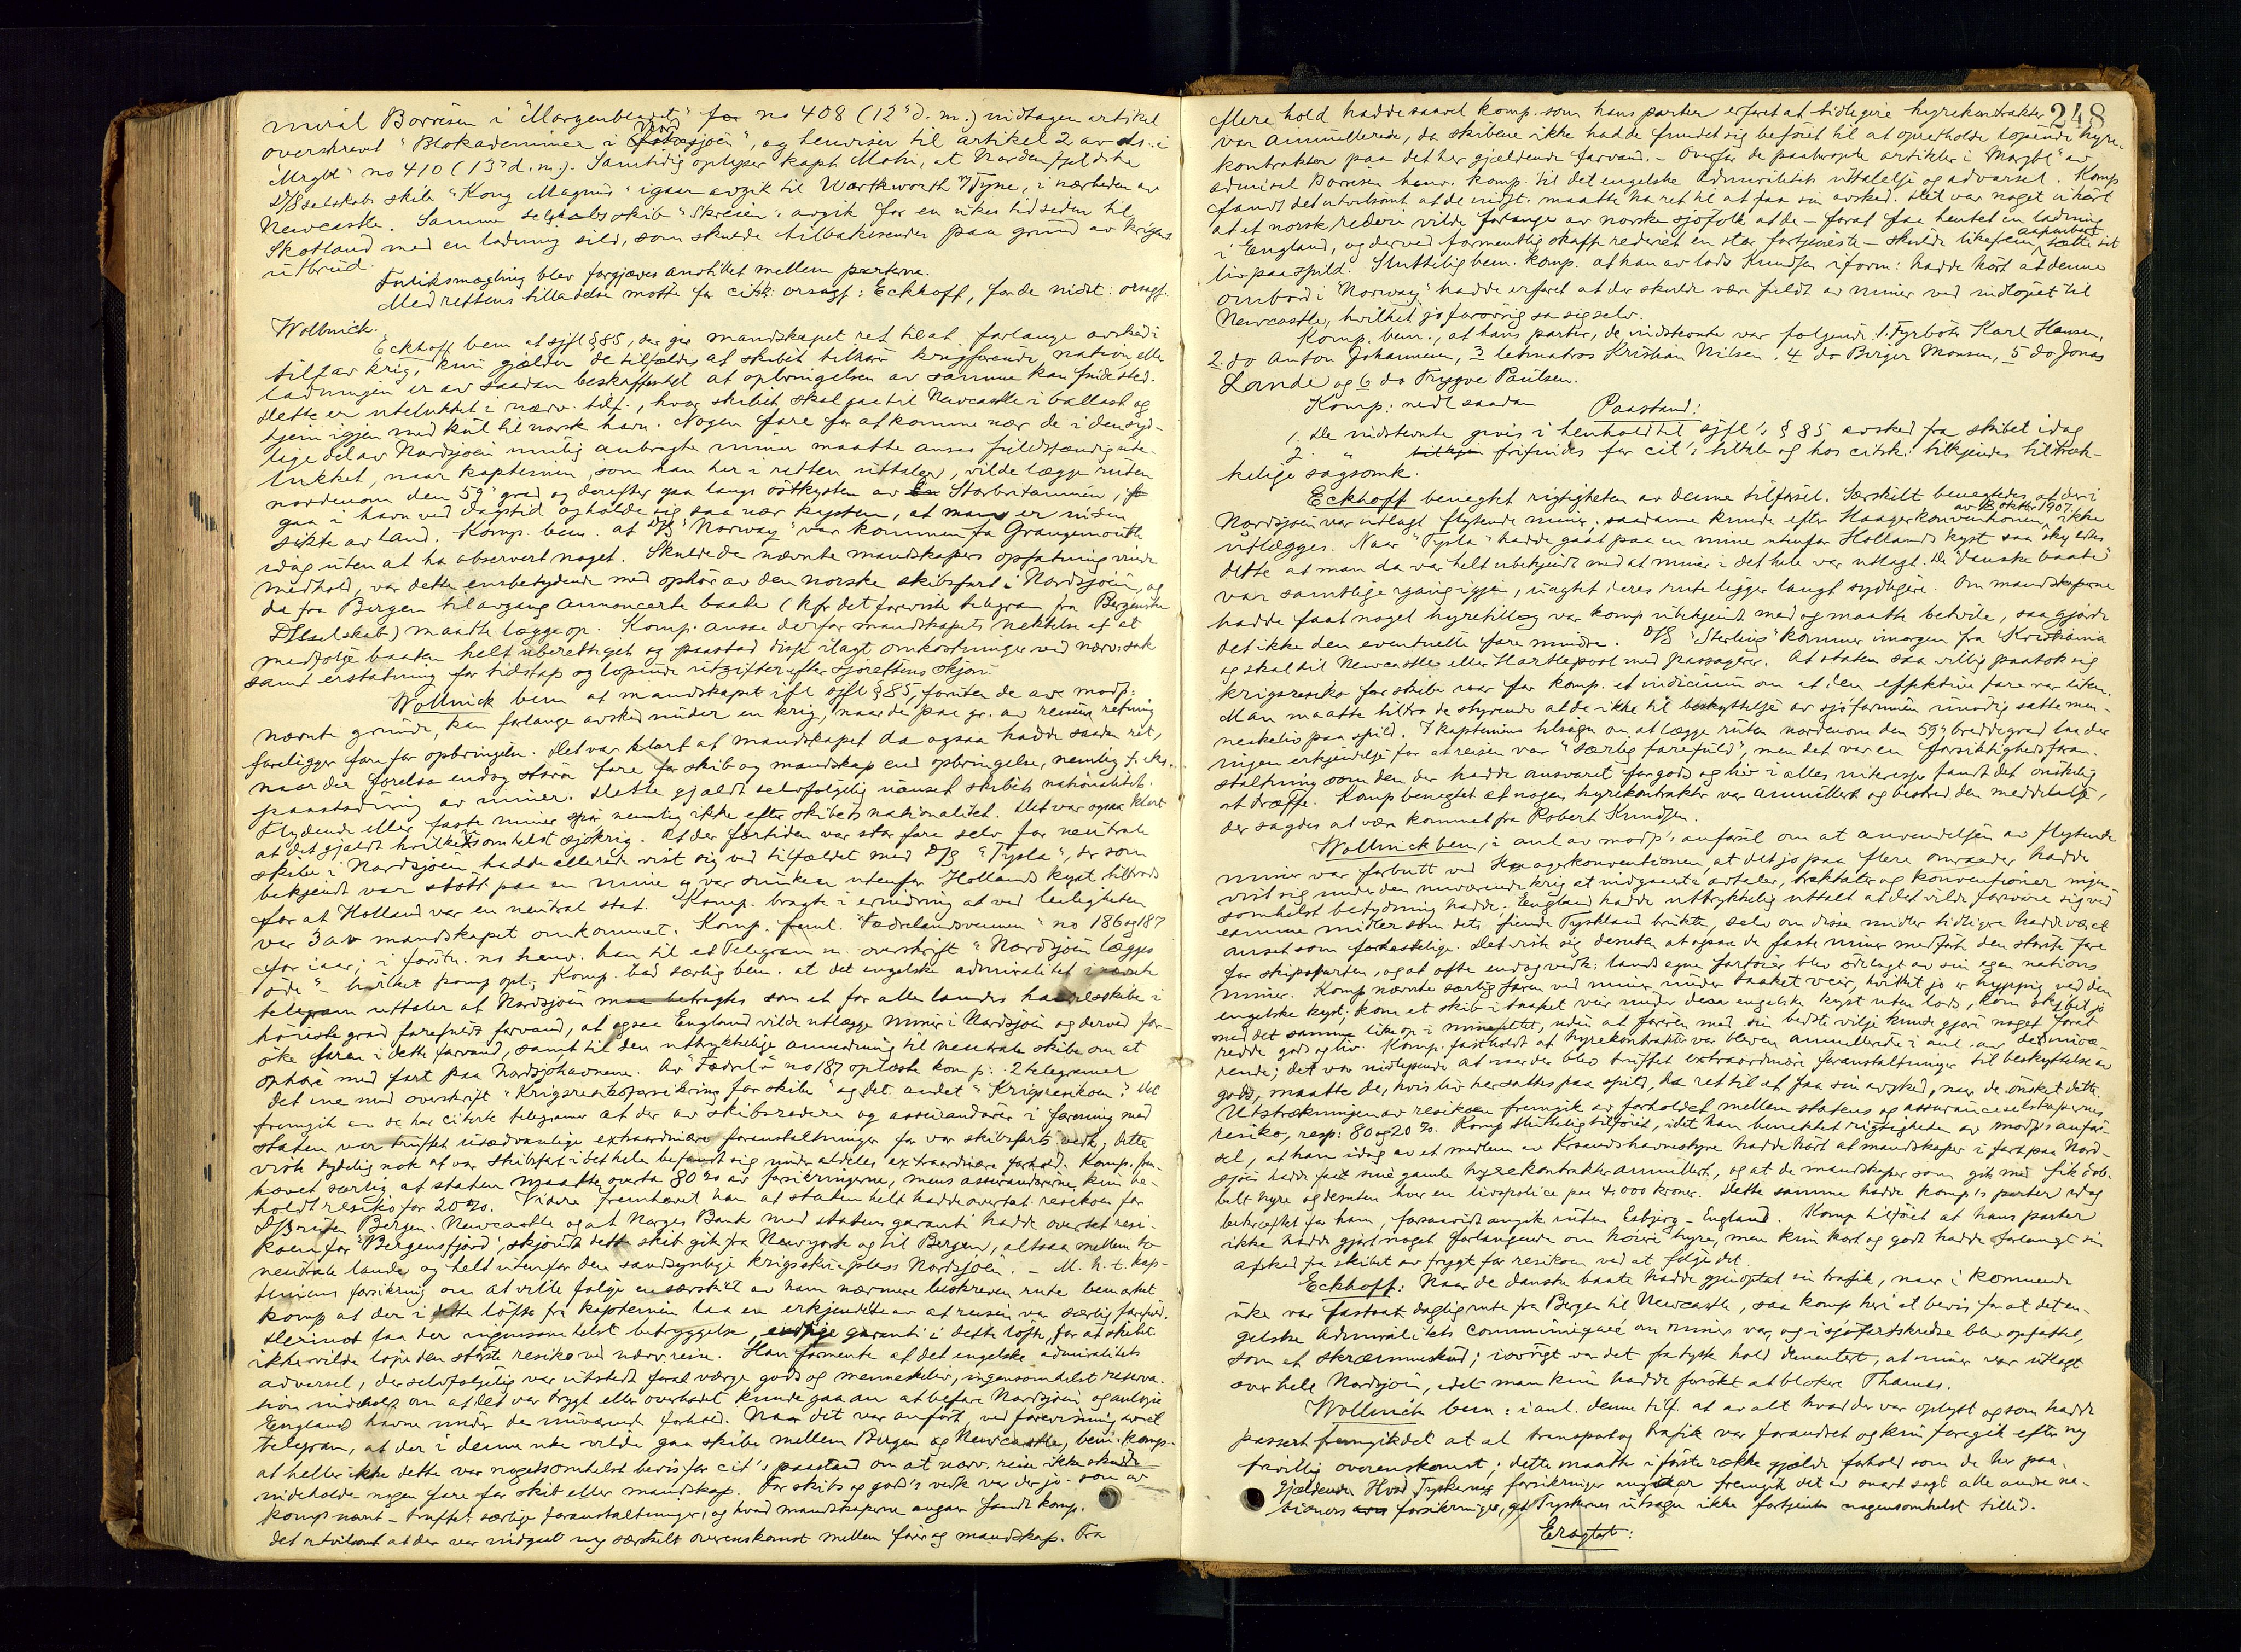 miral Børresen i "Morgenbladet" for no 408 (12te d. m.) indtagen artikel
overskrevet "Blokademiner i Nordsjøen", og henviser til artikel 2 av ds. i
Mrgbl" no 410 (13de d. m.). Samtidig oplyser kapt. Mohn, at Nordenfjeldske
D/S selskabs skib "Kong Magnus" igaar avgik til Warkworth v/Tyne, i nærheden av
Newcastle. Samme selskabs skib "Skreien" avgik for en ukes tid siden til
Skotland med en ladning sild, som skulde tilbakesendes paa grund av krigens
utbrud.
Forliksmægling blev forgjæves anstillet mellem parterne.
Med rettens tilladelse møtte for citk: orsagf: Eckhoff, for de indst: orsagf.
Wollnick.
Eckhoff bem. at sjfl § 85, der gir mandskapet ret til at forlange avsked i
tilf av krig, kun gjælder de tilfælde, at skibet tilhører krigførende nation, eller
ladningen er av saadan beskaffenhet at opbringelsen av samme kan finde sted.
Dette er utelukket i nærv. tilf., hvor skibet skal gaa til Newcastle i ballast og
hjem igjen med kul til norsk havn. Nogen fare for at komme nær de i den syd-
lige del av Nordsjøen mulig anbragte miner maatte anses fuldstændig ute-
lukket, naar kapteinen, som han her i retten uttaler, vilde lægge ruten
nordenom den 59de grad og derefter gaa langs østkysten av Storbritannien,
gaa i havn ved dagstid og holde sig saa nær kysten, at man er inden
sikte av land. Komp. bem. at D/S "Norway" var kommen fra Grangemouth
idag uten at ha observert noget. Skulde de nævnte mandskapers opfatning vinde
medhold, var dette ensbetydende med ophør av den norske skibsfart i Nordsjøen, og
de fra Bergen til avgang annoncerte baate (kfr det foreviste telegram fra Bergenske
D/Sselskab) maatte lægge op. Komp. ansaa derfor mandskapets nektelse af at
medfølge baaten helt uberettiget og paastod disse ilagt omkostninger ved nærv. sak
samt erstatning for tidstap og løpende utgifter efter sjørettens skjøn.
Wollnick bem at mandskapet ifl sjfl § 85, foruten de av modp:
nævnte grunde, kan forlange avsked under en krig, naar de paa gr. av reisens retning
foreligger fare for opbringelse. Det var klart at mandskapet da ogsaa hadde saadan ret,
naar der forelaa endog større fare for skib og mandskap end opbringelse, nemlig f. eks.
paastødning av miner. Dette gjaldt selvfølgelig uanset skibets nationalitet.
Flydende eller faste miner spør nemlig ikke efter skibets nationalitet. Det var ogsaa klart
at det gjaldt hvilkensomhelst sjøkrig. At der for tiden var stor fare selv for neutrale
skibe i Nordsjøen hadde allerede vist sig ved tilfældet med D/S "Tysla", der som
bekjendt var støtt paa en mine og var sunken utenfor Hollands kyst tiltrods
for at Holland var en neutral stat. Komp. bragte i erindring at ved leiligheten
var 3 av mandskapet omkommet. Komp. freml. "Fædrelandsvennen" no 186 og 187
for iaar; i førstn. no henv. han til et Telegram m. overskrift "Nordsjøen lægges
øde" – hvilket komp opl. Komp. bad særlig bem. at det engelske admiralitet i nævnte
telegram uttaler at Nordsjøen maa betragtes som et for alle landes handelsskibe i
høieste grad farefuldt farvand, at ogsaa England vilde utlægge miner i Nordsjøen og derved for-
øke faren i dette farvand, samt til den uttrykkelige anmodning til neutrale skibe om at
ophøre med fart paa Nordsjøhavnene. Av "Fædrel" no 187 oplæste komp: 2 telegramer
det ene med overskrift "Krigsrisikoforsikring for skibe" og det andet "Krigsrisikoen". Det
fremgik av de her citerte telegramer at der av skibsredere og assurandører i forening med
staten var truffet usedvanlige extraordinære foranstaltninger for vor skibsfarts vedk; dette
viste tydelig nok at vor skibsfart i det hele befandt sig under aldeles extraordinære forhold. Komp. frem-
hævet særlig at staten maatte overta 80 % av forsikringerne, mens assurandørerne kun be-
holdt resiko for 20 %. Videre fremhævet han at staten helt hadde overtat resikoen for
D/S ruten Bergen - Newcastle og at Norges Bank med statens garanti hadde overtat resi-
koen for "Bergensfjord", skjøndt dette skib gik fra Newyork og til Bergen, altsaa mellem to
neutrale lande og helt utenfor den sandsynlige krigsskueplass Nordsjøen. – M. h. t. kap-
teinens forsikring om at ville følge en særskilt av ham nærmere beskreven rute bemærket
komp at der i dette løfte fra kapteinen laa en erkjendelse av at reisen var særlig farefuld.
Derimot laa der ingensomhelst betryggelse, endsige garanti i dette løfte, for at skibet
ikke vilde løpe den største resiko ved nærv. reise. Han formente at det engelske admiralitets
advarsel, der selvfølgelig var utstedt for at værge gods og menneskeliv, ingensomhelst reserva-
tion indeholdt om at det var trygt eller overhodet kunde gaa an at befare Nordsjøen og anløpe
Englands havne under de nuværende forhold. Naar det var anført, ved forevisning av et
telegram, at der i denne uke vilde gaa skibe mellem Bergen og Newcastle, bem. komp.
at heller ikke dette var nogetsomhelst bevis for cit's paastand om at nærv. reise ikke skulde
indeholde nogen fare for skib eller mandskap. For skibs og gods's vedk var der jo – som av
komp nævnt – truffet særlige foranstaltninger, og hvad mandskaperne angaar fandt komp.
det utvilsomt at der var indgaat ny særskilt overenskomst mellem fører og mandskap. Fra
248
flere hold hadde saavel komp. som hans parter erfaret at tidligere hyrekontrakter
var annullerede, da skibene ikke hadde fundet sig beføiet til at opretholde løpende hyre-
kontrakter paa det her gjældende farvand. – Overfor de paaberopte artikler i Morgbl" av
admiral Børresen henv. komp. til det engelske admiralitets uttalelse og advarsel. Komp
fandt det utvilsomt at de indst. maatte ha ret til at faa sin avsked. Det var noget uhørt
at et norsk rederi vilde forlange av norske sjøfolk at de – for at faa hentet en ladning
i England, og derved formentlig skaffe rederiet en stor fortjeneste – skulde likefrem aapenbart sætte sit
liv paa spild. Sluttelig bem. komp. at han av lods Knudsen iform: hadde hørt at denne
ombord i "Norway" hadde erfaret at der skulde være fuldt av miner ved indløpet til
Newcastle, hvilket jo forøvrig sa sig selv.
Komp. bem., at hans parter, de indstevnte var følgende: 1. Fyrbøt: Karl Hansen,
2. do Anton Johannesen, 3 letmatros Kristian Nilsen, 4 do Birger Monsen, 5 do Jonas
Lande og 6 do Trygve Paulsen.
Komp: nedl saadan Paastand:
1. De indstevnte givis i henhold til sjfl's § 85 avsked fra skibet idag
2. " frifindes for cit's tiltale og hos citsk: tilkjendes tilstræk-
kelige sagsomk.
Eckhoff benegtet rigtigheten av denne tilførsel. Særskilt benegtedes, at der i
Nordsjøen var utlagt flytende miner; saadanne kunde efter Haagerkonventionen av 18 oktbr 1907 ikke
utlægges. Naar "Tysla" hadde gaat paa en mine utenfor Hollands kyst saa sky[ldtes]
dette at man da var helt ubekjendt med at miner i det hele var utlagt. De "danske baate"
var samtlige igang igjen, uagtet deres rute ligger langt sydligere. Om mandskaperne
hadde faat noget hyretillæg var komp ubekjendt med og maatte betvile, saa gjorde
det ikke den eventuelle fare mindre. D/S "Sterling" kommer imorgen fra Kristiania
og skal til Newcastle eller Hartlepool med passagerer. At staten saa villig paatok sig
krigsresiko for skibe var for komp. et indicium om at den effektive fare var liten.
Man maatte tiltro de styrende at de ikke til beskyttelse av sjøfarinnen unødig satte men-
neskeliv paa spild. I kapteinens tilsagn om at lægge ruten nordenom den 59de breddegrad laa der
ingen erkjendelse for at reisen var "særlig farefuld", men det var en forsiktighedsforan-
staltning som den der hadde ansvaret for gods og liv i alles interesse fandt det ønskelig
at træffe. Komp benegtet at nogen hyrekontrakter var annullert og bestred den meddelelse,
der sagdes at være kommet fra Robert Knudsen.
Wollnick bem, i anl av modp's anførsel om at anvendelsen av flytende
miner var forbutt ved Haagerkonventionen, at det jo paa flere omraader hadde
vist sig under den nuværende krig at indgaaete avtaler, traktater og konventioner ingen-
somhelst betydning hadde. England hadde uttrykkelig uttalt at det vilde forsvare sig ved
samme midler som dets fiende Tyskland brukte, selv om disse midler tidligere hadde været
anset som forkastelige. Det viste sig desuten at ogsaa de faste miner medførte den største fare
for skipsfarten, og at ofte endog vedk: lands egne fartøier blev ødelagt av sin egen nations
miner. Komp nævnte særlig faren ved miner under taaket veir, hvilket jo er hyppig ved den
engelske kyst; kom et skib i taaket veir under den engelske kyst uten lods, kom skibet jo
med det samme like op i minefeltet, uden at føreren med sin bedste vilje kunde gjøre noget for at
redde gods og liv. Komp. fastholdt at hyrekontrakter var bleven annullerede i anl. av det nuvæ-
rende; det var indlysende at naar der blev truffet extraordinære foranstaltninger til beskyttelse av
gods, maatte de, hvis liv her sattes paa spild, ha ret til at faa sin avsked, naar de ønsket dette.
Utstrækningen av resikoen fremgik av forholdet mellem statens og assuranceselskapernes
resiko, resp: 80 og 20 %. Komp sluttelig tilføiet, idet han benektet rigtigheten av modp's anfør-
sel, at han idag av et medlem av Krsands havnestyre hadde hørt at mandskaper i fart paa Nord-
sjøen hadde faat sine gamle hyrekontrakter annullert, og at de mandskaper som gik med fik dob-
belt hyre og desuten hver en livspolice paa 4000 kroner. Dette samme hadde komp's parter idag
bekræftet for ham, forsaavidt angik ruten Esbjerg - England. Komp tilføiet at hans parter
ikke hadde gjort noget forlangende om høiere hyre, men kun kort og godt hadde forlangt sin
afsked fra skibet av frygt for resikoen ved at følge det.
Eckhoff: Naar de danske baate hadde gjenoptat sin trafik, naar i kommende
uke var fastsat daglig rute fra Bergen til Newcastle, saa komp heri et bevis for at det en-
gelske Admiralitets communiqueé om miner var, og i sjøfartskredse blev opfattet,
som et skræmmeskud; iøvrigt var det fra tysk hold dementert, at miner var utlagt
over hele Nordsjøen, idet man kun hadde forsøkt at blokere Thames.
Wollnick bem: i anl. denne tilf. at av alt hvad der var oplyst og som hadde
passert fremgik det at al transport og trafik var forandret og kun foregik efter ny
frivillig overenskomst; dette maatte i første række gjælde forhold som de her paa-
gjældende. Hvad Tyskernes forsikringer angaar fremgik det av snart sagt alle andre na-
tioners forsikringer, at Tyskernes utsagn ikke fortjente nogensomhelst tillid.
Eragtet: